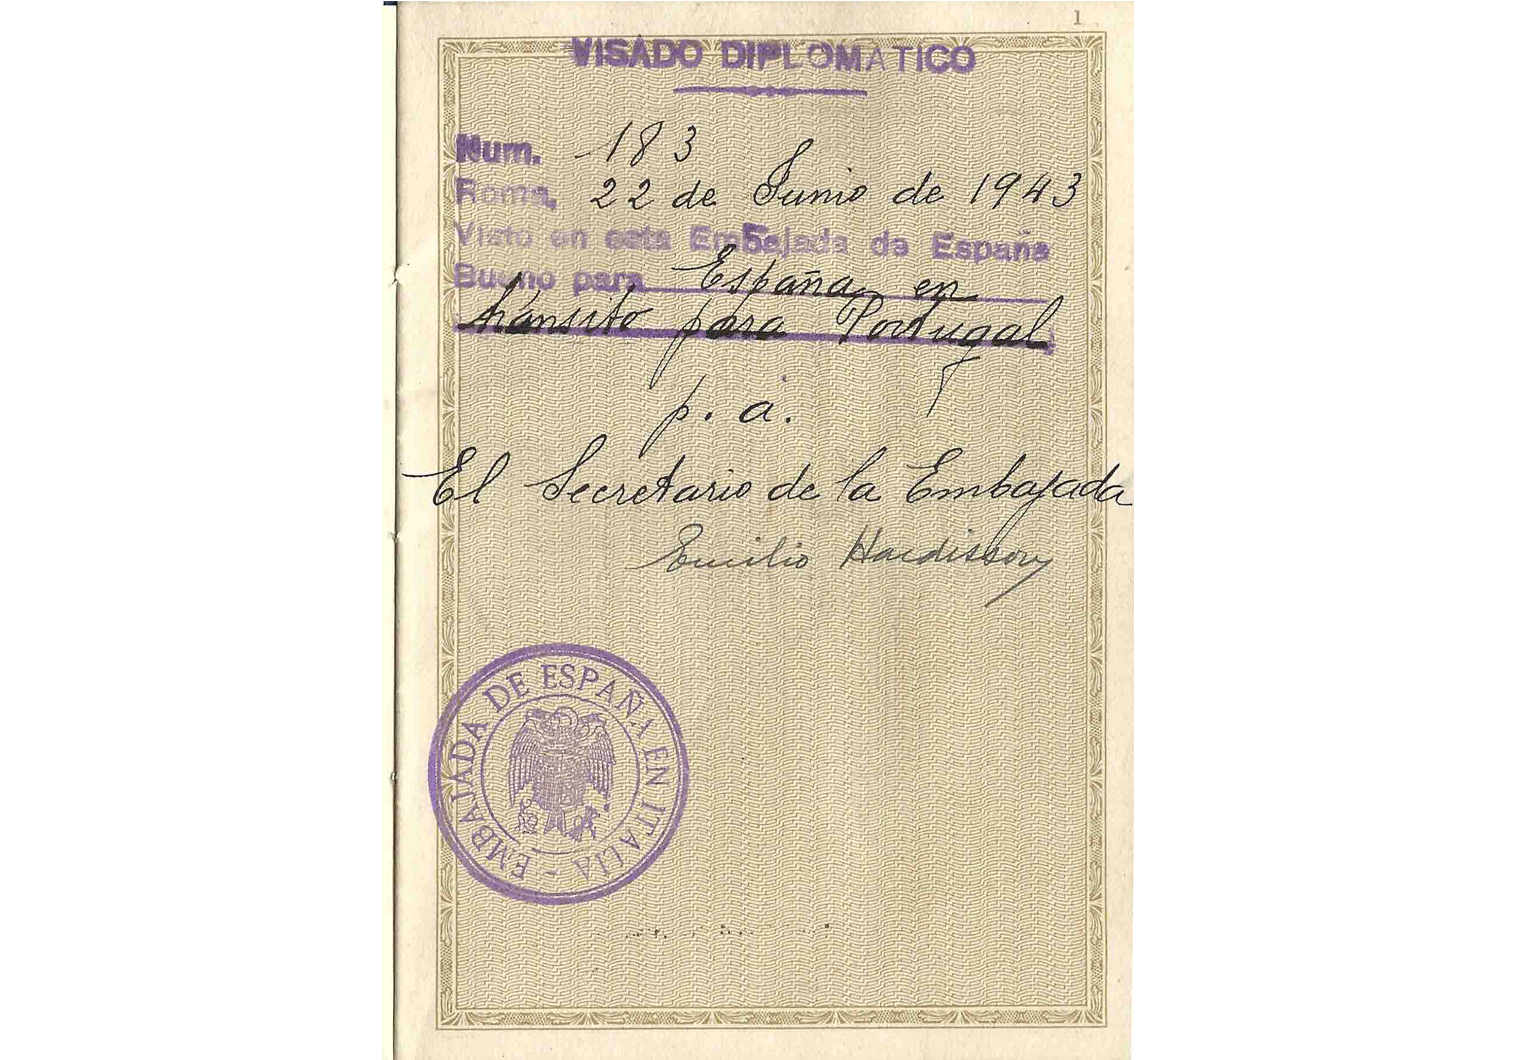 1
VISADO DIPLOMATICO
Num. 183
Roma, 22 de Junio de 1943
Visto en esta Embajada de España
Bueno para España en
tránsito para Portugal
p. a.
El Secretario de la Embajada
Emilio Hardisson
EMBAJADA DE ESPAÑA EN ITALIA -